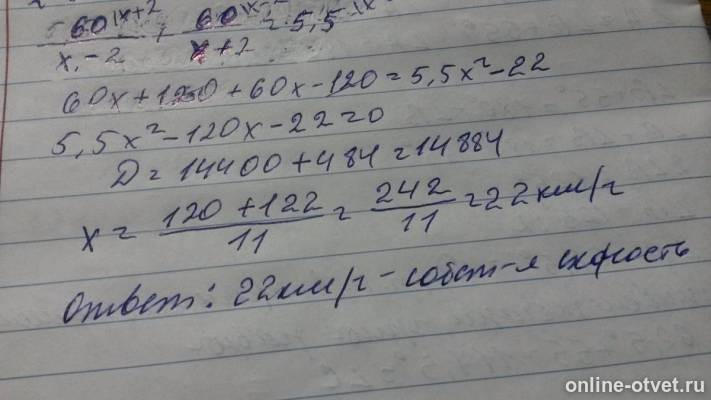 60(x+2 / x-2 + 60(x- / x+2 = 5,5(x
60x+120+60x-120=5,5x²-22
5,5x²-120x-22=0
D=14400+484=14884
x = 120+122 / 11 = 242 / 11 = 22км/г
Ответ: 22км/г - собст-я скорость
online-otvet.ru